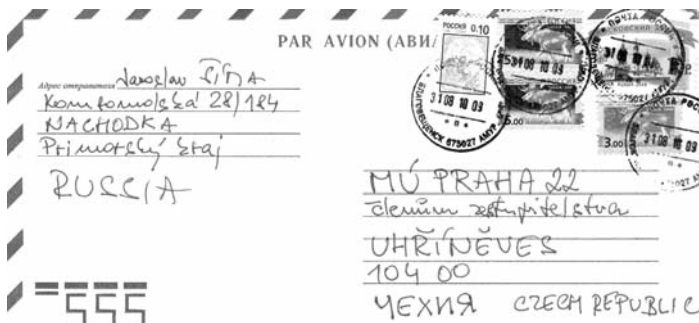 PAR AVION (АВИА
Адрес отправителя Jaroslav ŘÍHA
Komsomolská 28/184
NACHODKA
Primorský kraj
RUSSIA
РОССИЯ 0.10
5.00
3.00
ПОЧТА РОССИИ
БЛАГОВЕЩЕНСК 675027 АМУР.
3108 10 09
3108 10 09
3108 10 09
3108 10 09
MÚ PRAHA 22
členům zastupitelstva
UHŘÍNĚVES
104 00
ЧЕХИЯ CZECH REPUBLIC